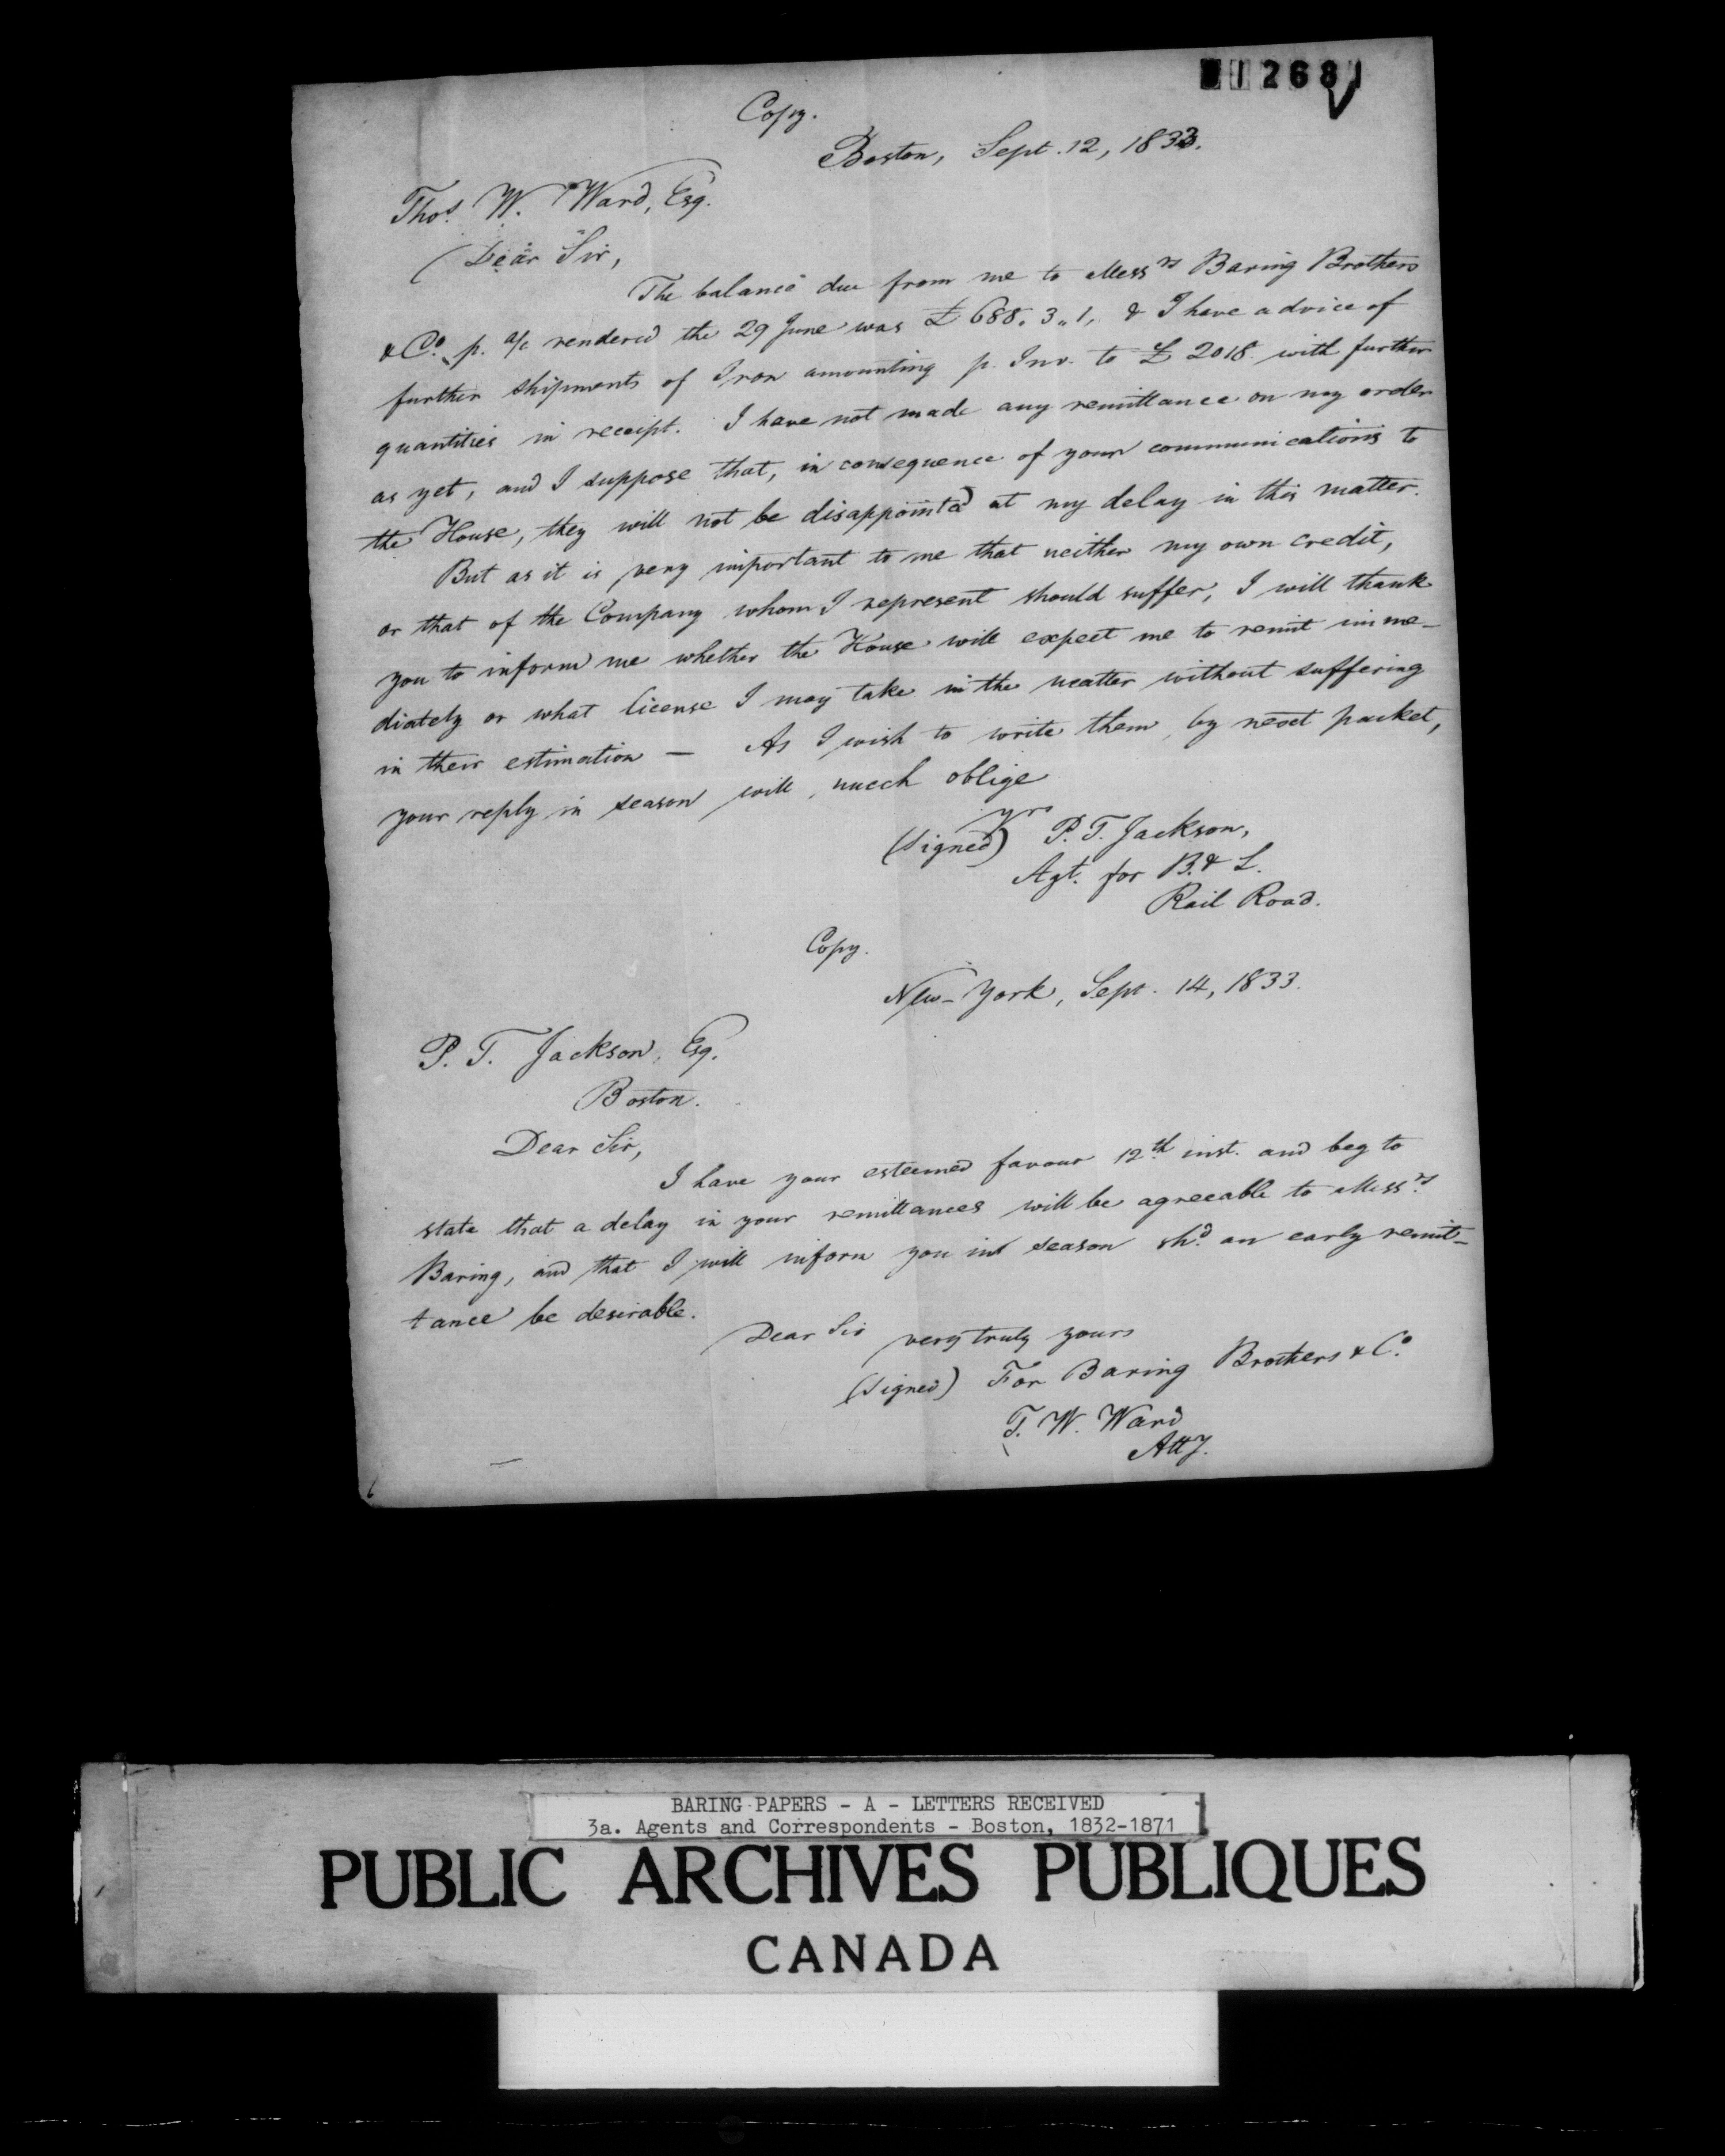 12681
Copy.
Boston, Sept. 12, 1833.
Thos. W. Ward, Esq.
Dear Sir,
The balance due from me to Messrs Baring Brothers
& Co. p. a/c rendered the 29 June was £ 688. 3 ,, 1, & I have advice of
further shipments of Iron amounting p. Inv. to £ 2018 with further
quantities in receipt. I have not made any remittance on my order
as yet, and I suppose that, in consequence of your communications to
the House, they will not be disappointed at my delay in this matter.
But as it is very important to me that neither my own credit,
or that of the Company whom I represent should suffer, I will thank
you to inform me whether the House will expect me to remit imme-
diately or what license I may take in the matter without suffering
in their estimation — As I wish to write them, by next packet,
your reply in season will, much oblige
yrs
(signed) P. T. Jackson,
Agt. for B. & L.
Rail Road.
Copy.
New-York, Sept. 14, 1833.
P. T. Jackson, Esq.
Boston.
Dear Sir,
I have your esteemed favour 12th inst. and beg to
state that a delay in your remittances will be agreeable to Messrs.
Baring, and that I will inform you in season shd. an early remit-
tance be desirable.
Dear Sir very truly yours
(signed) For Baring Brothers & Co.
T. W. Ward
Atty.
BARING PAPERS - A - LETTERS RECEIVED
3a. Agents and Correspondents - Boston, 1832-1871
PUBLIC ARCHIVES PUBLIQUES
CANADA